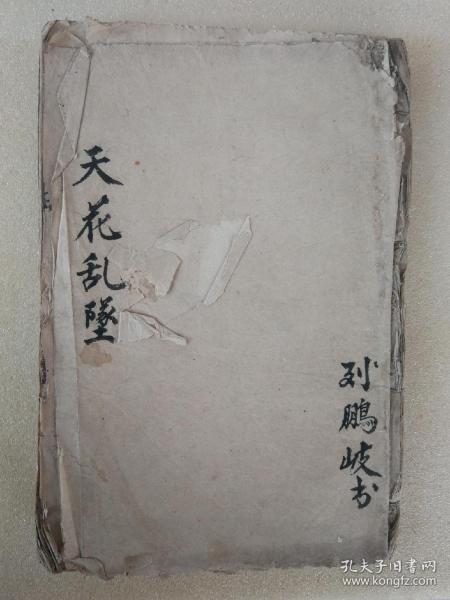 天花乱墜
刘鵬岐书
孔夫子旧书网
www.kongfz.com